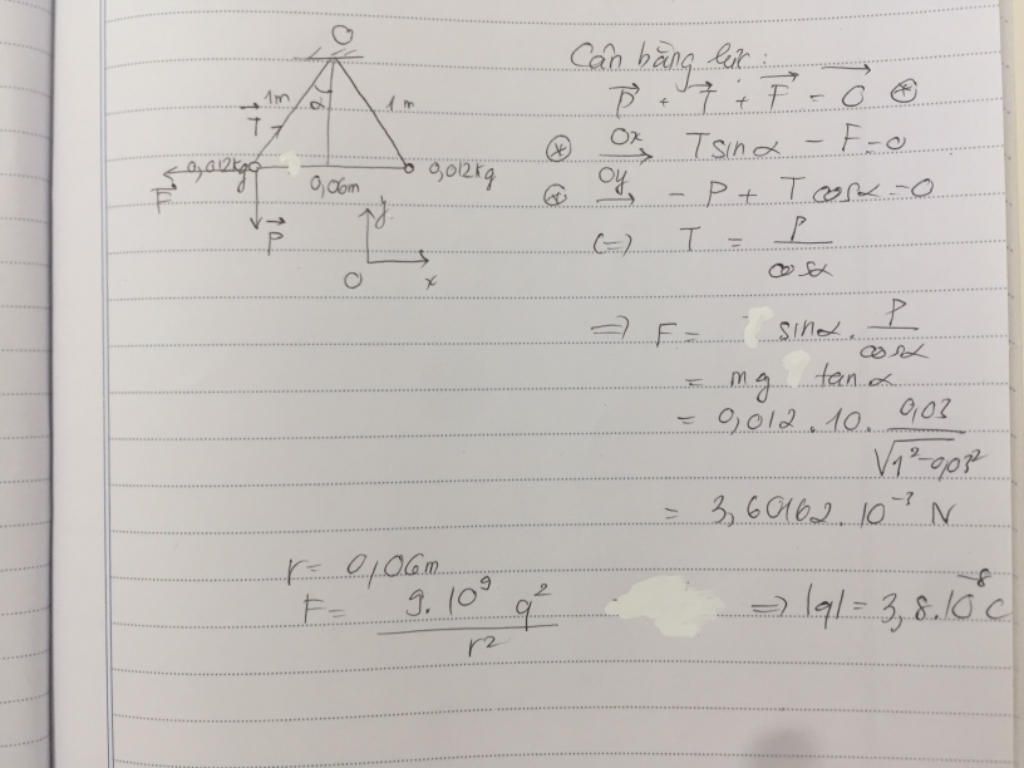 O
1m α 1m
T⃗
0,012kg 0,06m 0,012kg
F⃗
P⃗
y
O x
Cân bằng lực:
P⃗ + T⃗ + F⃗ = O⃗ ⊛
⊛ Ox→ Tsinα - F = 0
⊛ Oy→ - P + T cosα = 0
(=) T = P / cosα
=> F = sinα . P / cosα
= mg tanα
= 0,012 . 10 . 0,03 / √1² - 0,03²
= 3,60162 . 10⁻³ N
r = 0,06m
F = 9.10⁹ q² / r² => |q| = 3,8.10⁻⁸ C